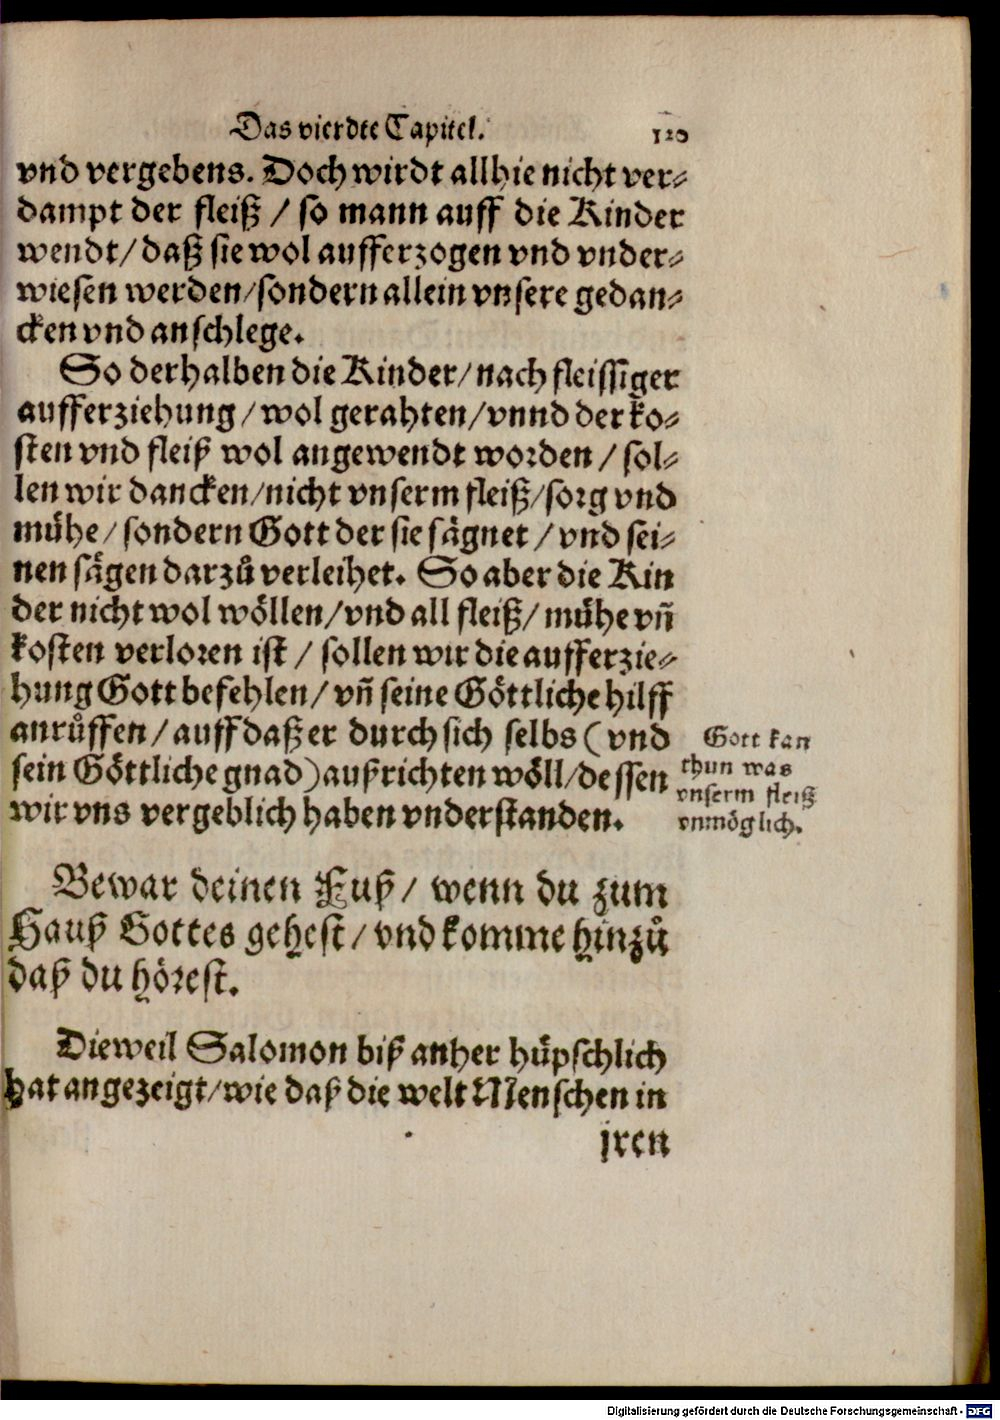 Das vierdte Capitel. 120
vnd vergebens. Doch wirdt allhie nicht ver⸗
dampt der fleiß / so mann auff die Kinder
wendt / daß sie wol aufferzogen vnd vnder⸗
wiesen werden / sondern allein vnsere gedan⸗
cken vnd anschlege.
So derhalben die Kinder / nach fleissiger
aufferziehung / wol gerahten / vnnd der ko⸗
sten vnd fleiß wol angewendt worden / sol⸗
len wir dancken / nicht vnserm fleiß / sorg vnd
muͤhe / sondern Gott der sie saͤgnet / vnd sei⸗
nen saͤgen darzuͦ verleihet. So aber die Kin
der nicht wol woͤllen / vnd all fleiß / muͤhe vñ
kosten verloren ist / sollen wir die aufferzie⸗
hung Gott befehlen / vñ seine Goͤttliche hilff
anruͦffen / auff daß er durch sich selbs ( vnd
sein Goͤttliche gnad ) außrichten woͤll / dessen
wir vns vergeblich haben vnderstanden.
Gott kan
thun was
vnserm fleiß
vnmoͤglich.
Bewar deinen Fuß / wenn du zum
Hauß Gottes gehest / vnd komme hinzuͦ
daß du hoͤrest.
Dieweil Salomon biß anher huͤpschlich
hat angezeigt / wie daß die welt Menschen in
jren
Digitalisierung gefördert durch die Deutsche Forschungsgemeinschaft - DFG